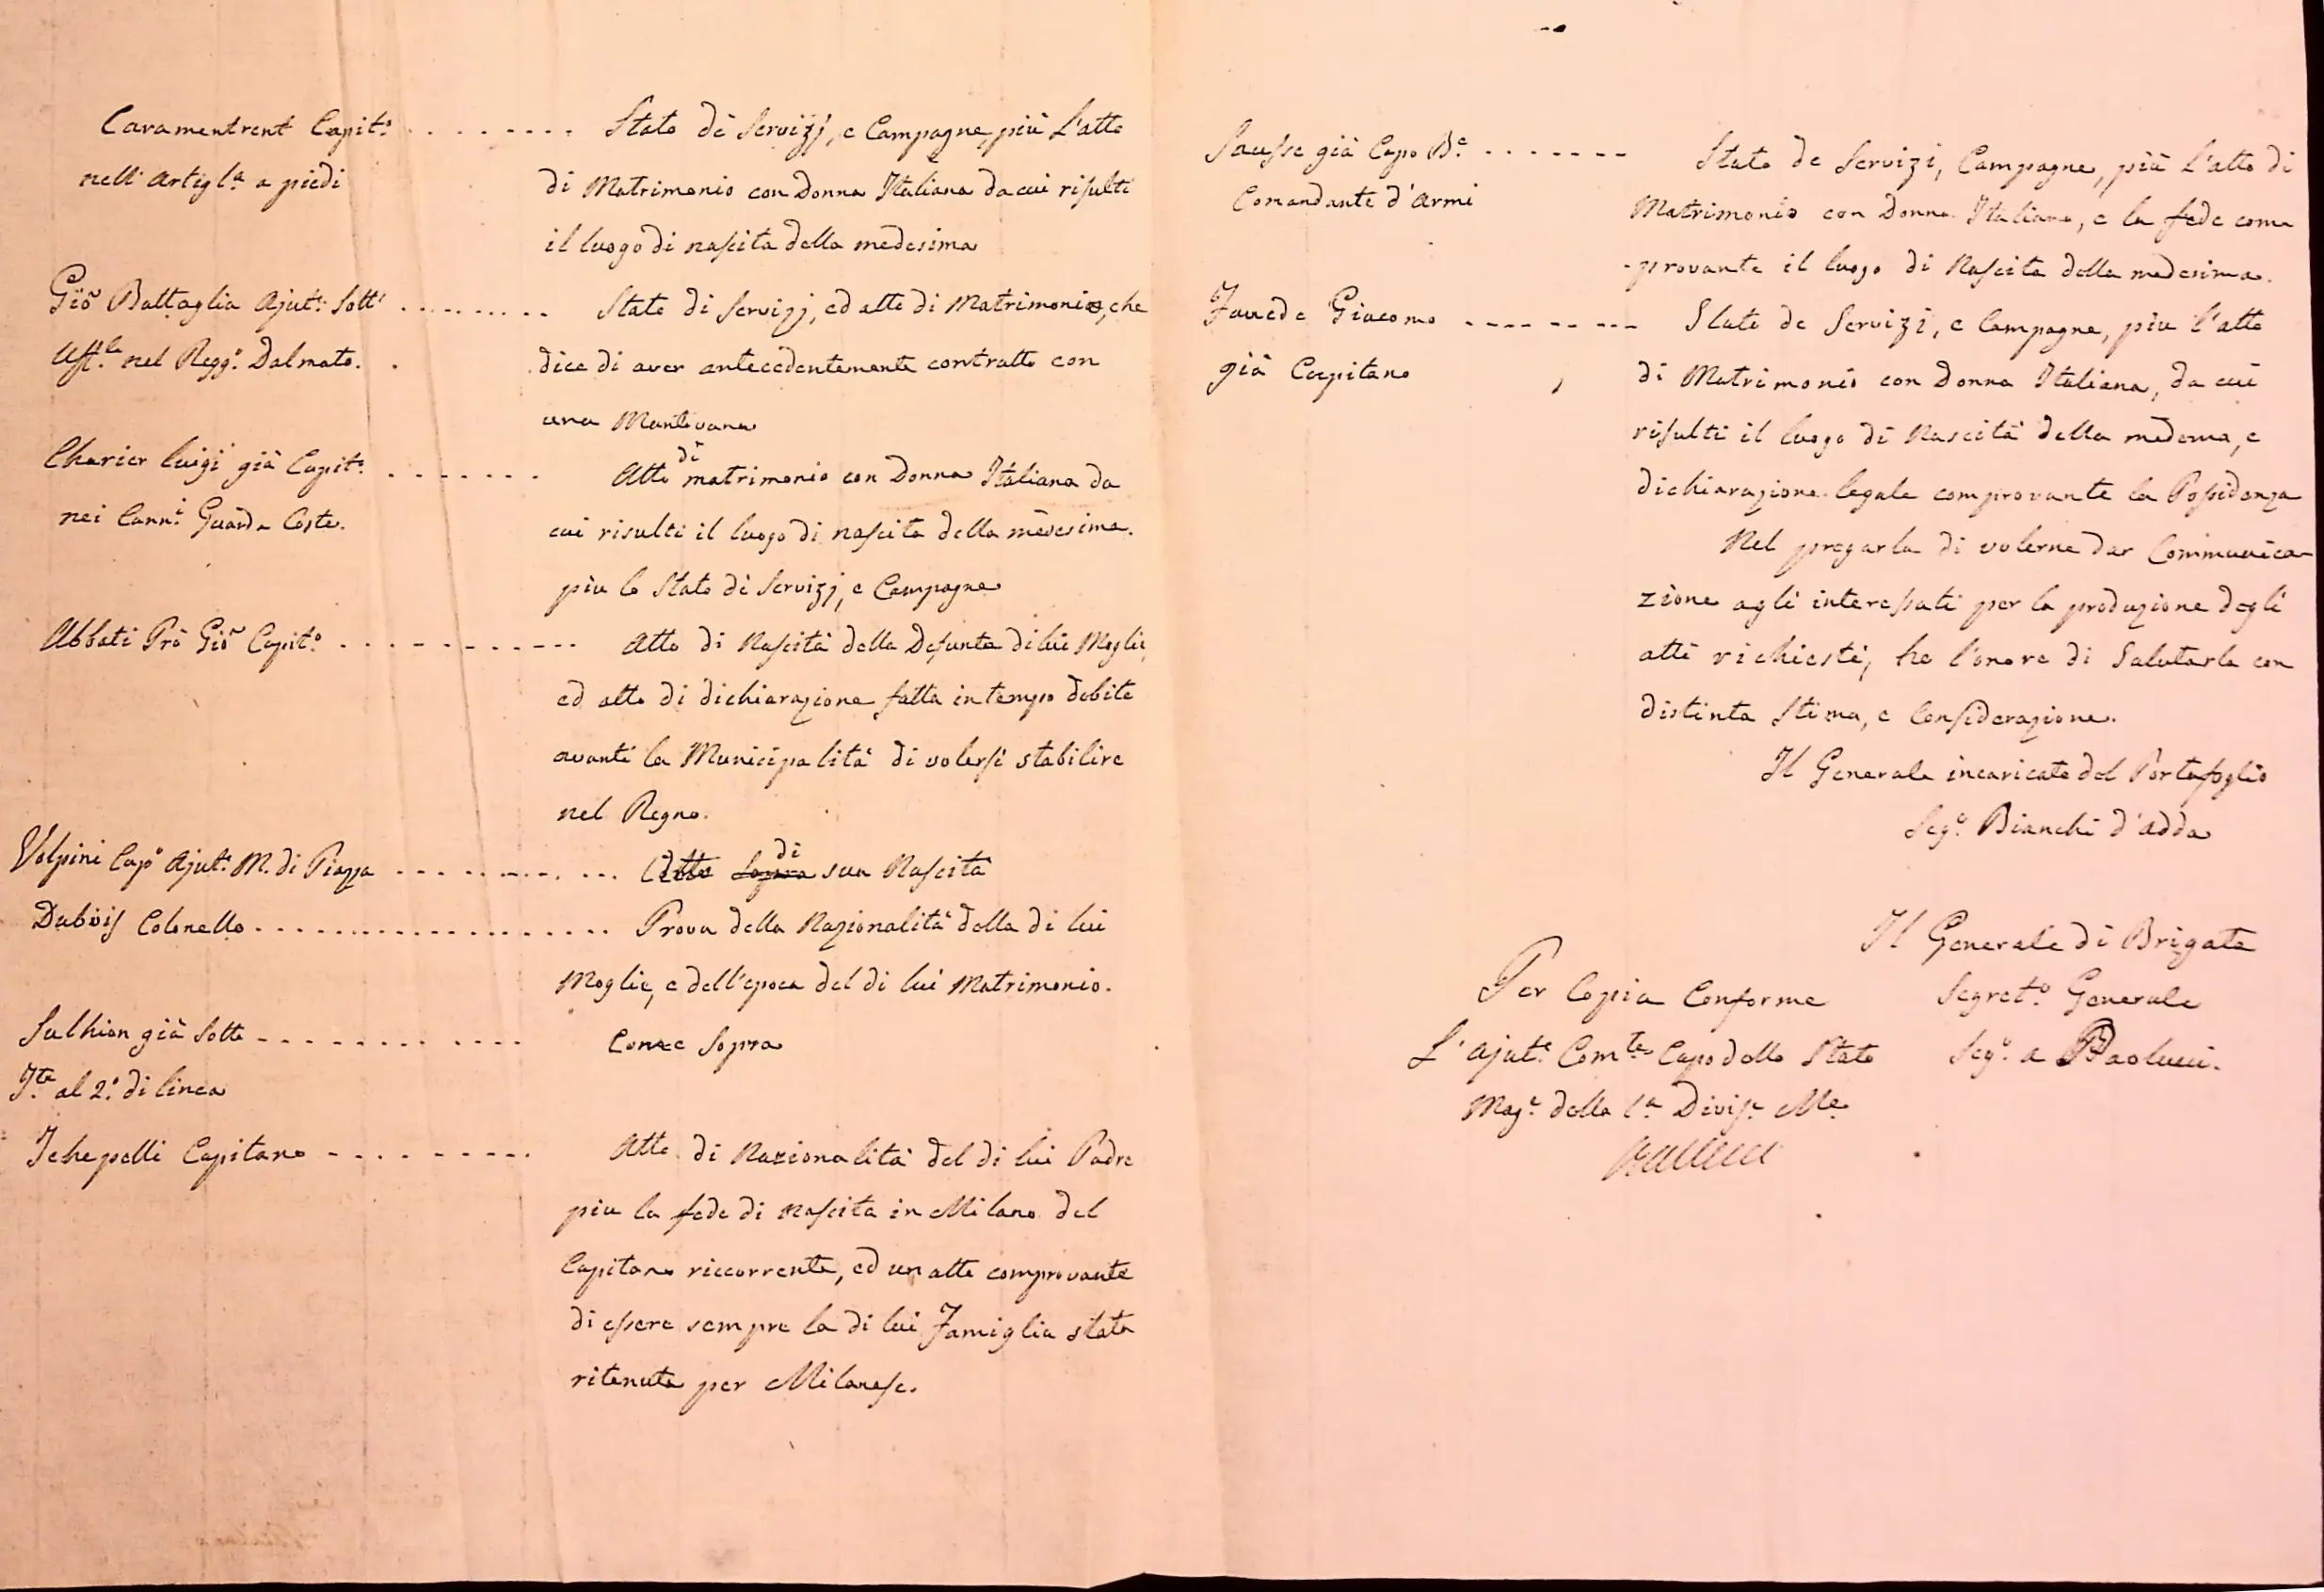 Caramentrent Capit.o . . . . . . . . Stato di Servizj, e Campagne, più L'atto
nell'Artigl.a a piedi di Matrimonio con Donna Italiana da cui risulti
il luogo di nascita della medesima
Gio Battaglia Ajut.e Sott' . . . . . . . . . Stato di Servizj, ed atto di Matrimonio, che
Uff.le nel Regg.o Dalmato. dice di aver antecedentemente contratto con
una Mantovana
Charier Luigi già Capit.o . . . . . . . Atto di matrimonio con Donna Italiana da
nei Cann.i Guarda Coste. cui risulti il luogo di nascita della medesima.
più lo Stato di Servizj, e Campagne
Abbati Gio Capit.o . . . . . . . . . . . . Atto di Nascita della Defunta di lui Moglie,
ed atto di dichiarazione fatta in tempo debito
avanti la Municipalità di volersi stabilire
nel Regno.
Volpini Cap.o Ajut.e M. di Piazza . . . . . . . . . . . di sua Nascita
Dubois Colonello . . . . . . . . . . . . . . . . . . Prova della Nazionalità della di lui
Moglie, e dell'epoca del di lui Matrimonio.
Salhion già Sotto . . . . . . . . . . . . Come Sopra
T.te al 2.o di linea
Tchepelli Capitano . . . . . . . . . Atto di Nazionalità del di lui Padre
più la fede di nascita in Milano del
Capitano riccorrente, ed un atto comprovante
di essere sempre la di lui Famiglia stata
ritenuta per Milanese.
Sausse già Capo B.e . . . . . . . Stato de Servizi, Campagne, più L'atto di
Comandante d'Armi Matrimonio con Donna Italiana, e la fede com
-provante il luogo di Nascita della medesima.
Favede Giacomo . . . . . . . . . Stato de Servizi, e Campagne, più l'atto
già Capitano di Matrimonio con Donna Italiana, da cui
risulti il luogo di Nascita della medema, e
dichiarazione legale comprovante la Possidenza
Nel pregarla di volerne dar Communica-
zione agli interessati per la produzione degli
atti richiesti, ho l'onore di Salutarla con
distinta Stima, e Considerazione.
Il Generale incaricato del Portafoglio
Seg.o Bianchi d'Adda
Il Generale di Brigata
Per Copia Conforme Segret.o Generale
L'Ajut.e Com.te Capo dello Stato Seg.o a Paolucci.
Mag.e della 1.a Divis.e M.e